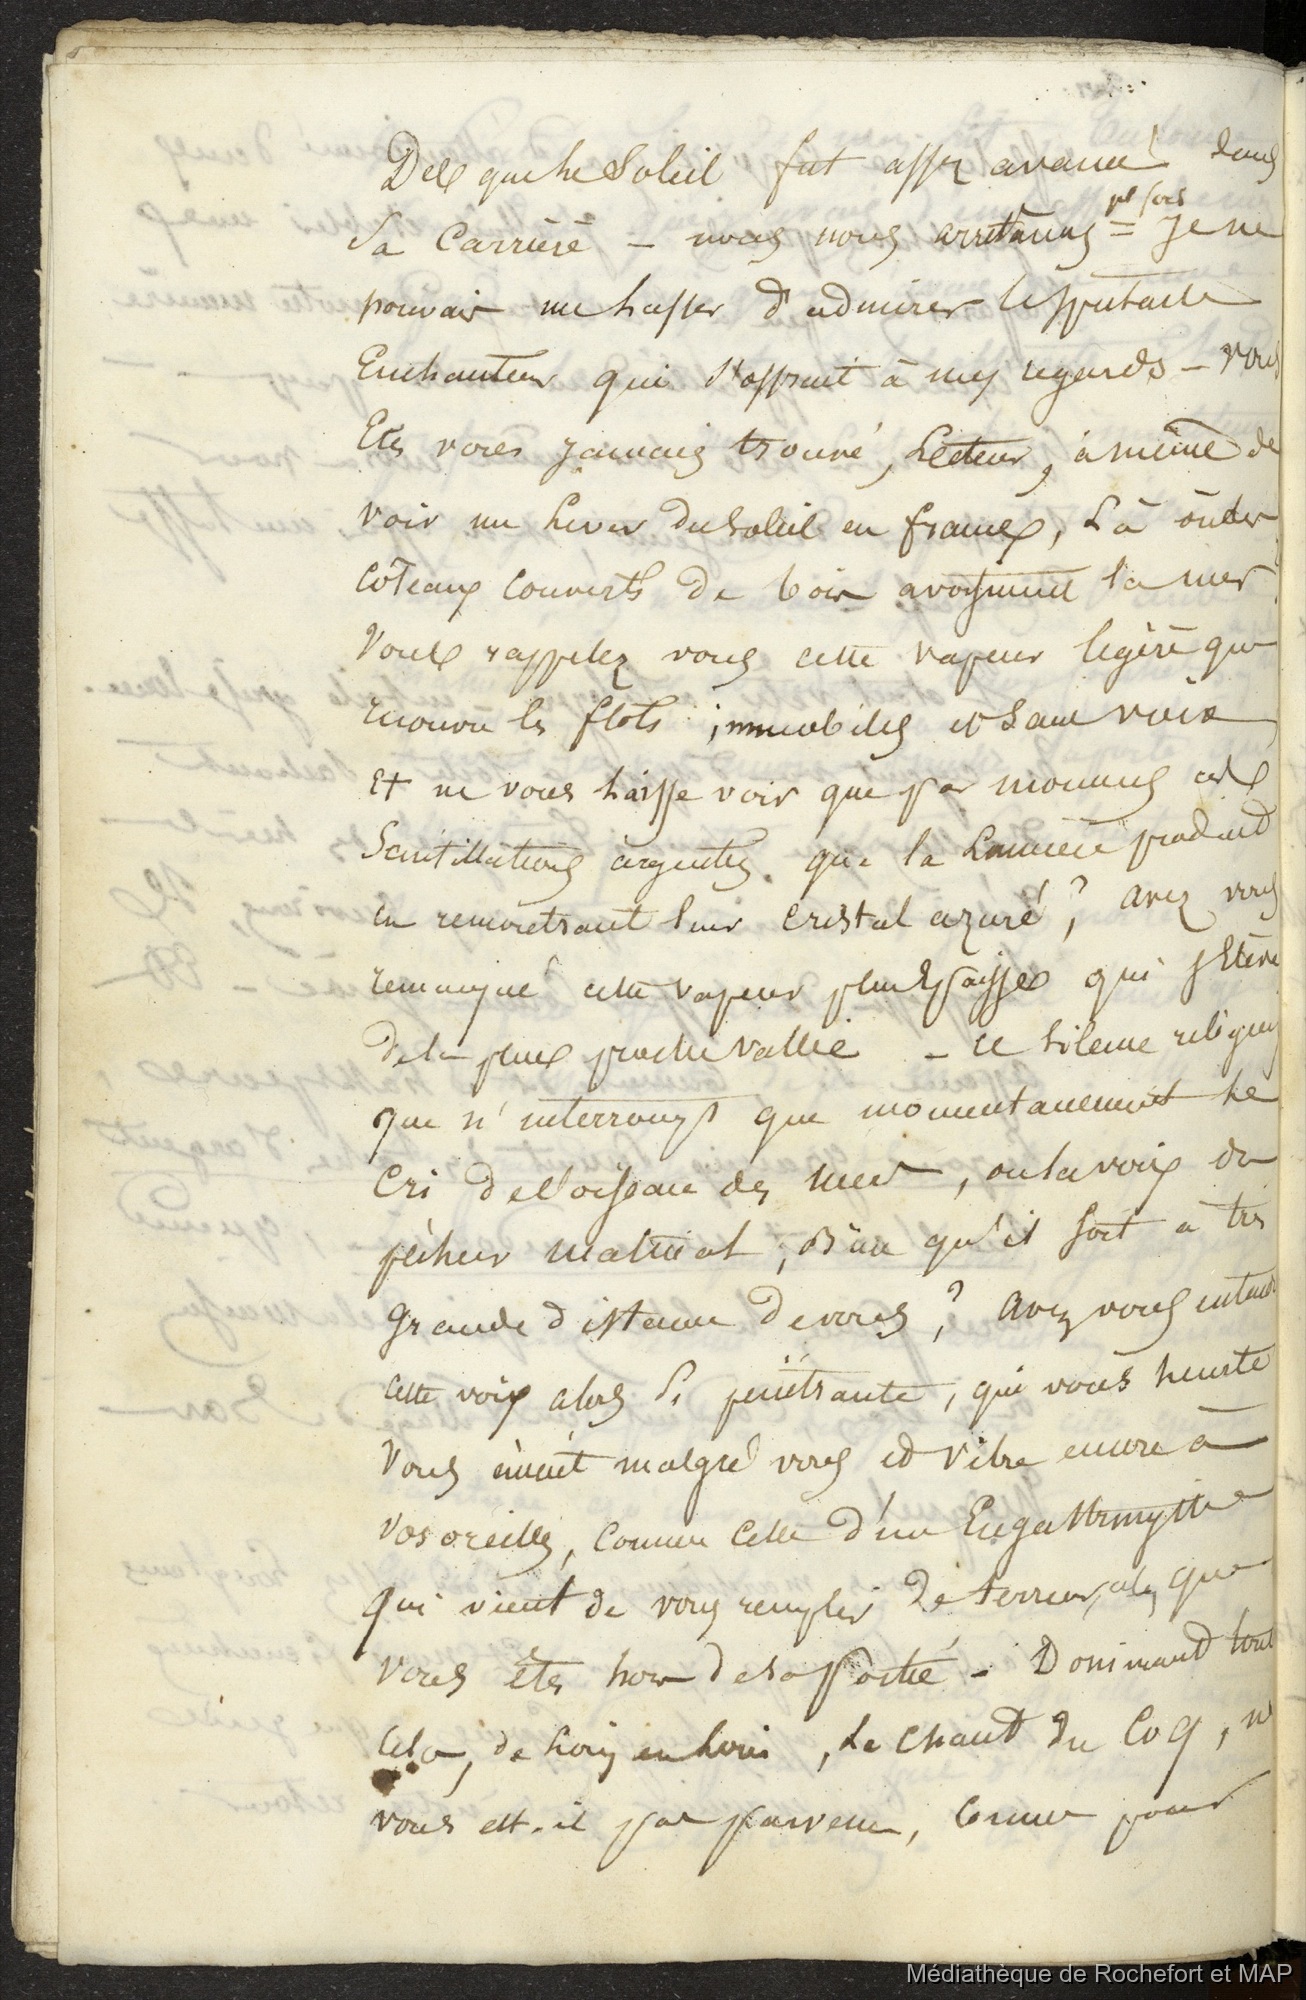 pl fois
Des que le Soleil fut assez avancé dans
Sa Carrière – nous nous arretames = Je ne
pouvais me lasser d'admirer le spectacle
Enchanteur qui s'offrait à mes regards – vous
Etes vous jamais trouvé, Lecteur, à même de
voir un Lever du Soleil en france, Là où des
côteaux couverts de bois avoisinent la mer
Vous rappelez vous cette vapeur légère que
recouvre les flots immobiles et sans voix
Et ne vous laisse voir que par momens ces
Scintillations argentées que la Lumière produit
en rencontrant leur Cristal azuré ? avez vous
remarqué cette vapeur plus Epaisse qui s'Elève
de la plus proche vallée – Ce silence religieux
que n'interrompt que momentanement le
Cri de l'oiseau des mers, ou la voix du
pêcheur matinal, Bien qu'il soit à très
grande distance de vous ? avez vous entendu
cette voix alors si pénétrante, qui vous heurte
Vous émeut malgré vous et vibre encore à
vos oreilles, comme celle d'un Engastrimythe
qui vient de vous remplir de terreur, alors que
vous êtes hors de sa Portée – Dominant tout
Cela, de Loin en Loin, Le Chant du Coq, ne
vous est-il pas parvenu, comme pour
Médiathèque de Rochefort et MAP